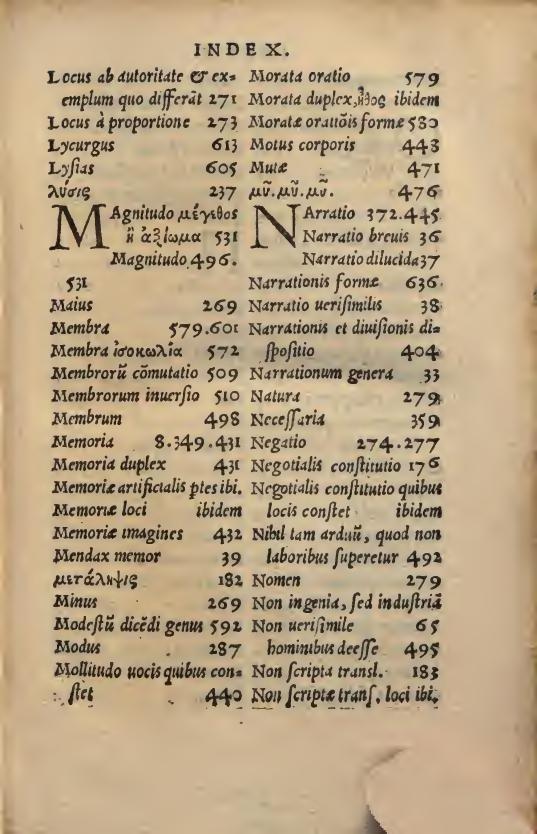 INDEX.
Locus ab autoritate & ex=
emplum quo differāt 271
Locus à proportione 273
Lycurgus 613
Lyſias 605
λύσις 237
MAgnitudo μέγεθος
ἢ ἀξίωμα 531
Magnitudo.496.
531
Maius 269
Membra 579.601
Membra ἰσοκωλία 572
Membrorū cōmutatio 509
Membrorum inuerſio 510
Membrum 498
Memoria 8.349.431
Memoria duplex 431
Memoriæ artificialis ptes ibi.
Memoriæ loci ibidem
Memoriæ imagines 432
Mendax memor 39
μετάληψις 182
Minus 269
Modeſtū dicēdi genus 592
Modus 287
Mollitudo uocis quibus con=
ſtet 440
Morata oratio 579
Morata duplex, ἦθος ibidem
Moratæ oratiōis formæ 580
Motus corporis 443
Mutæ 471
μῦ.μῦ.μῦ. 476
NArratio 372.445
Narratio breuis 36
Narratio dilucida 37
Narrationis formæ 636
Narratio ueriſimilis 38
Narrationis et diuiſionis di=
ſpoſitio 404
Narrationum genera 33
Natura 279
Neceſſaria 359
Negatio 274.277
Negotialis conſtitutio 176
Negotialis conſtitutio quibus
locis conſtet ibidem
Nihil tam arduū, quod non
laboribus ſuperetur 492
Nomen 279
Non ingenia, ſed induſtriā
Non ueriſimile 65
hominibus deeſſe 495
Non ſcripta tranſl. 183
Non ſcriptæ tranſ. loci ibi.